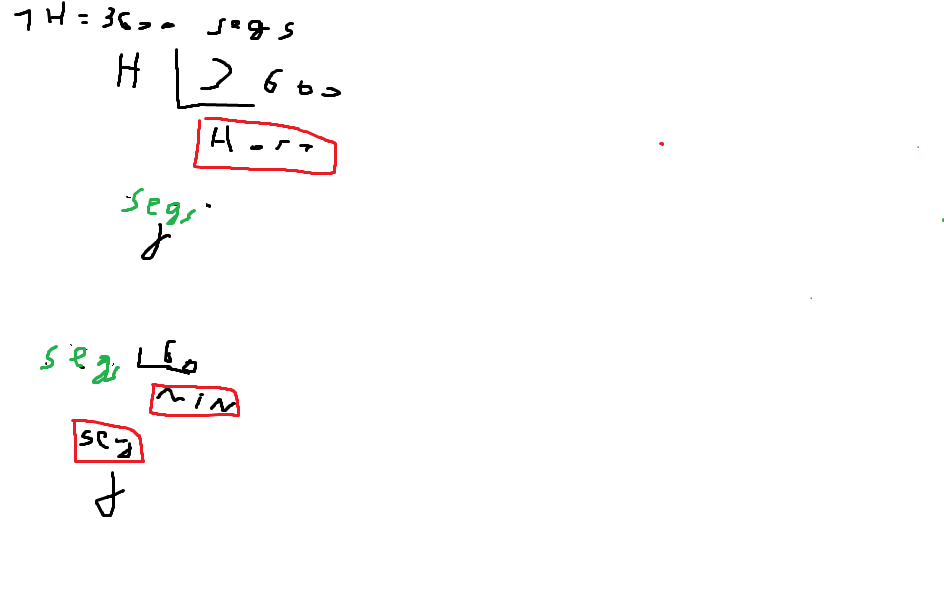 1 H = 3600 segs
H 3600
H
segs
segs 60
min
seg